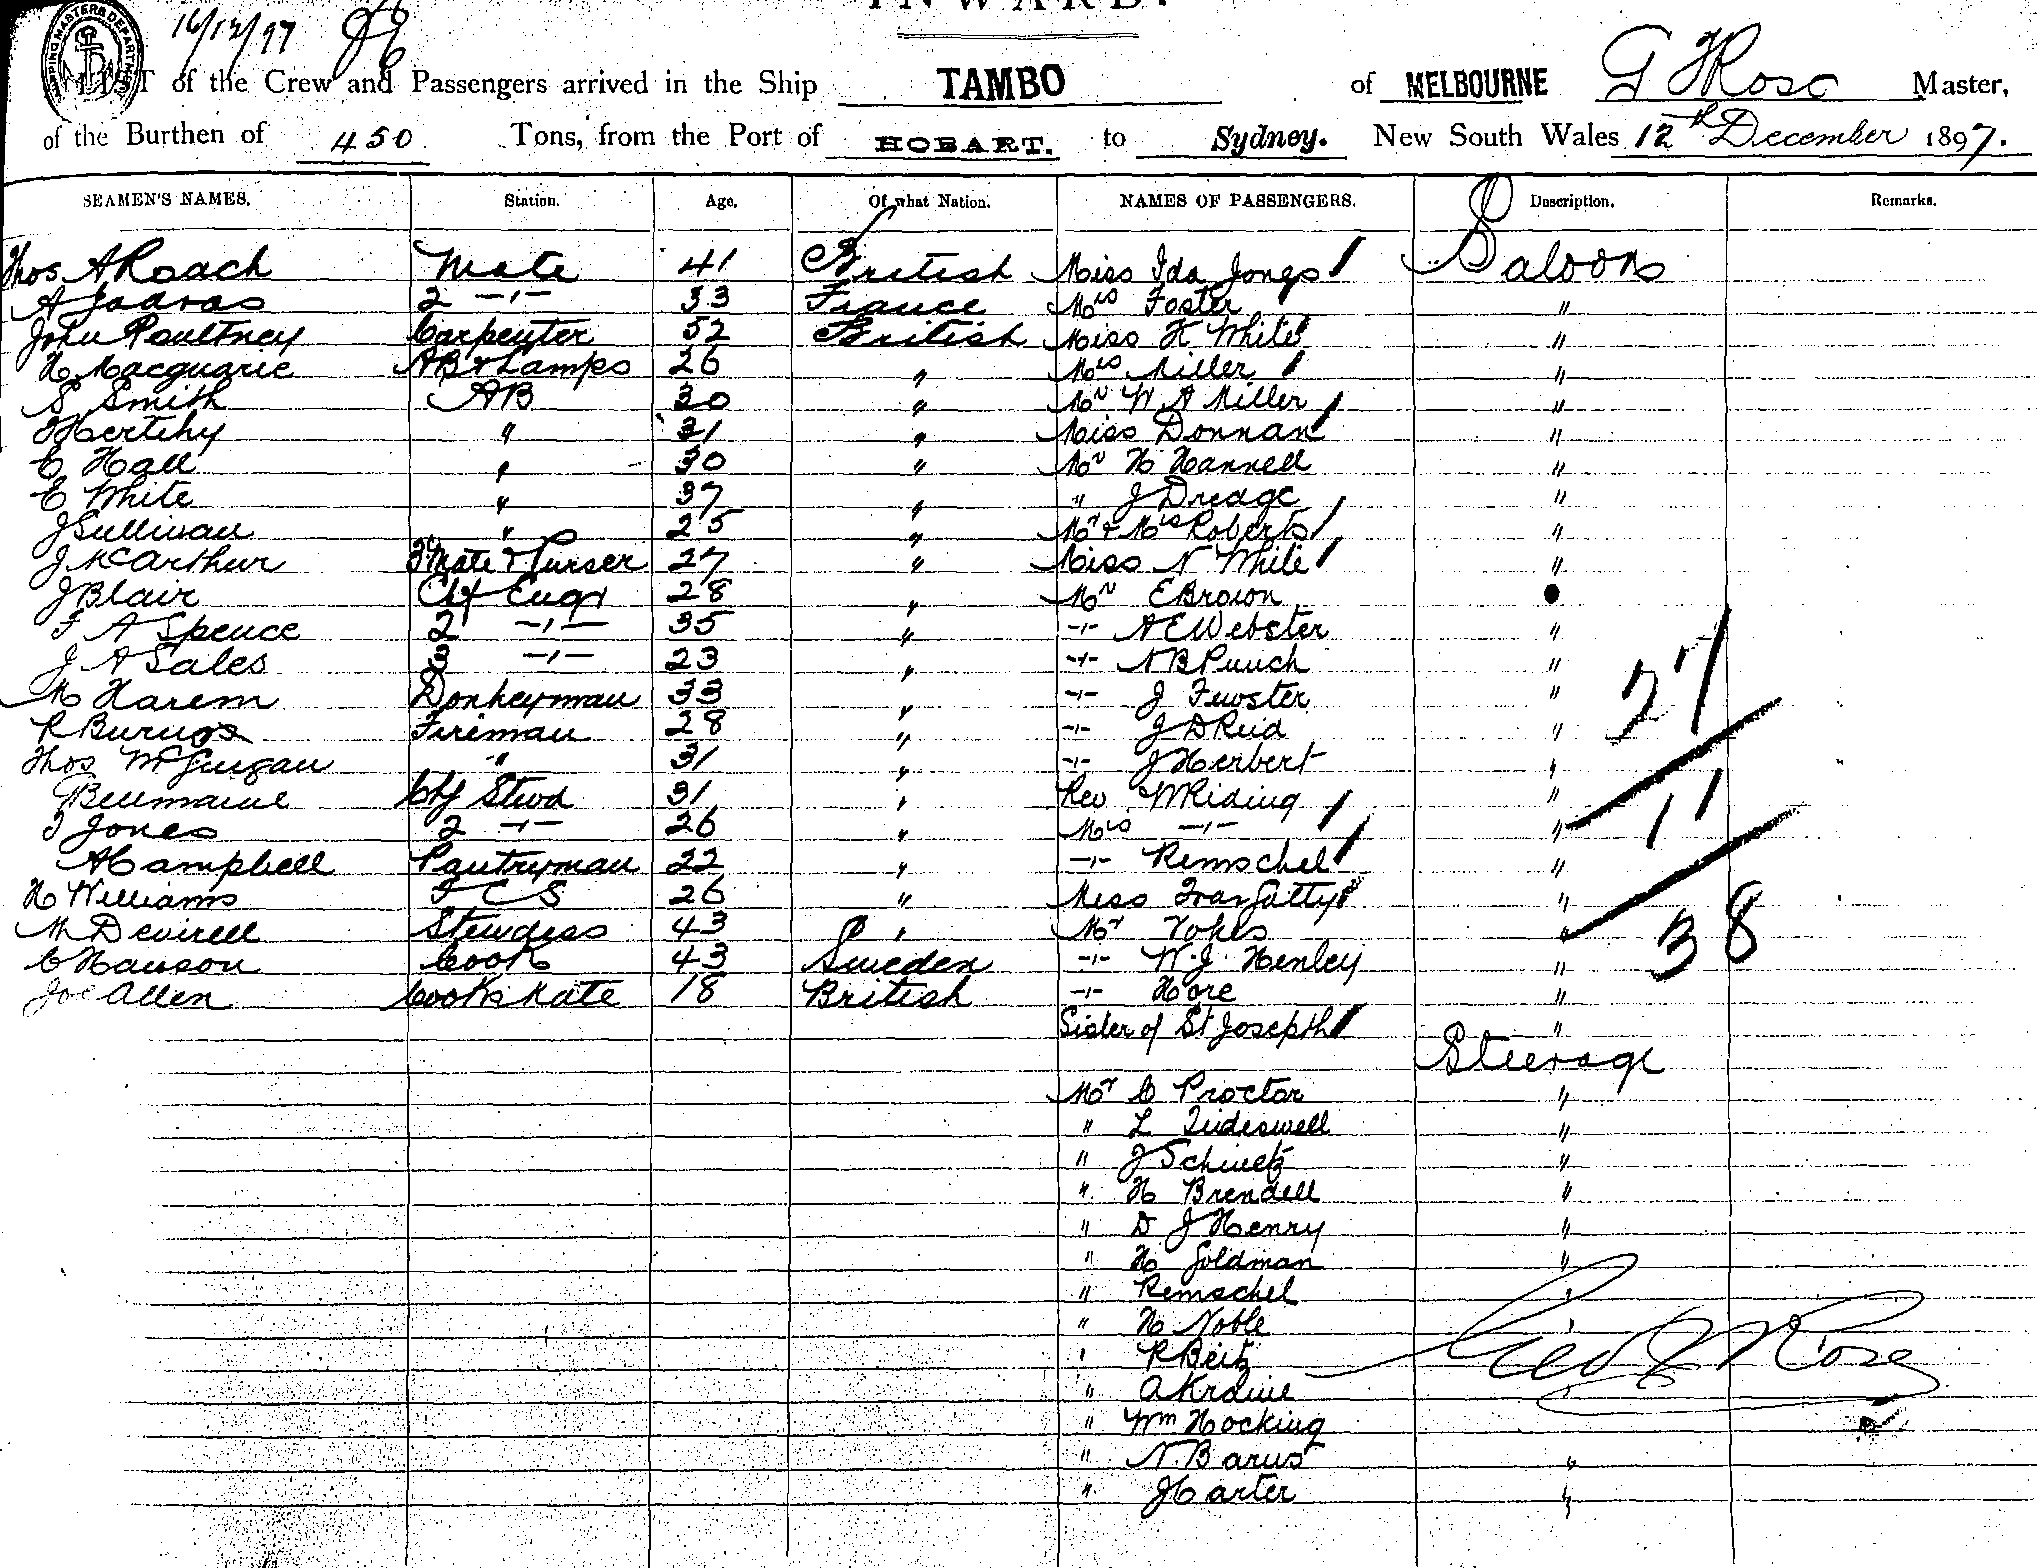 INWARD.
16/12/97
LIST of the Crew and Passengers arrived in the Ship TAMBO of MELBOURNE G Rose Master,
of the Burthen of 450 Tons, from the Port of HOBART. to Sydney. New South Wales 12th December 1897.
SEAMEN'S NAMES. Station. Age. Of what Nation. NAMES OF PASSENGERS. Description. Remarks.
Thos A Roach Mate 41 British Miss Ida Jones Saloon
A 2 -"- 33 France Mrs Foster "
John Poultney Carpenter 52 British Miss K White "
H Macquarie AB & Lamps 26 " Mrs Miller "
S Smith AB 30 " Mr W A Miller "
Hertihy " 31 " Miss Donnan "
C Hall " 30 " Mr H Hannell "
E White " 37 " " J Dreage "
J Sullivan " 25 " Mr & Mrs Roberts "
J McArthur 3rd Mate & Purser 27 " Miss N White "
J Blair Chf Engr 28 " Mr E Brown "
F A Spence 2 -"- 35 " -"- A E Webster "
J A Sales 3 -"- 23 " -"- N B Punch "
M Harem Donkeyman 33 " -"- J Fewster "
R Burngs Fireman 28 " -"- J D Reid " 27
Thos McGuigan " 31 " -"- J Herbert "
Chf Stwd 31 " Rev W Riding "
J Jones 2 -"- 26 " Mrs -"- " 11
A Campbell Pantryman 22 " -"- Remschel "
H Williams F C S 26 " Miss "
M Devirell Stewdess 43 " Mr Vokes " 38
C Hanson Cook 43 Sweden -"- W. J. Henley "
Joe Allen Cooks Mate 18 British -"- Hore "
Sister of St Josepth "
Steerage
Mr C Proctor "
" L Tideswell "
" J Schwetz "
" H Brendell "
" D J Henry "
" H Goldman "
" Remschel "
" H Noble "
" R Beitz Geo J Rose
" A Krdine
" Wm Hocking
" N. Barus "
" J Carter "